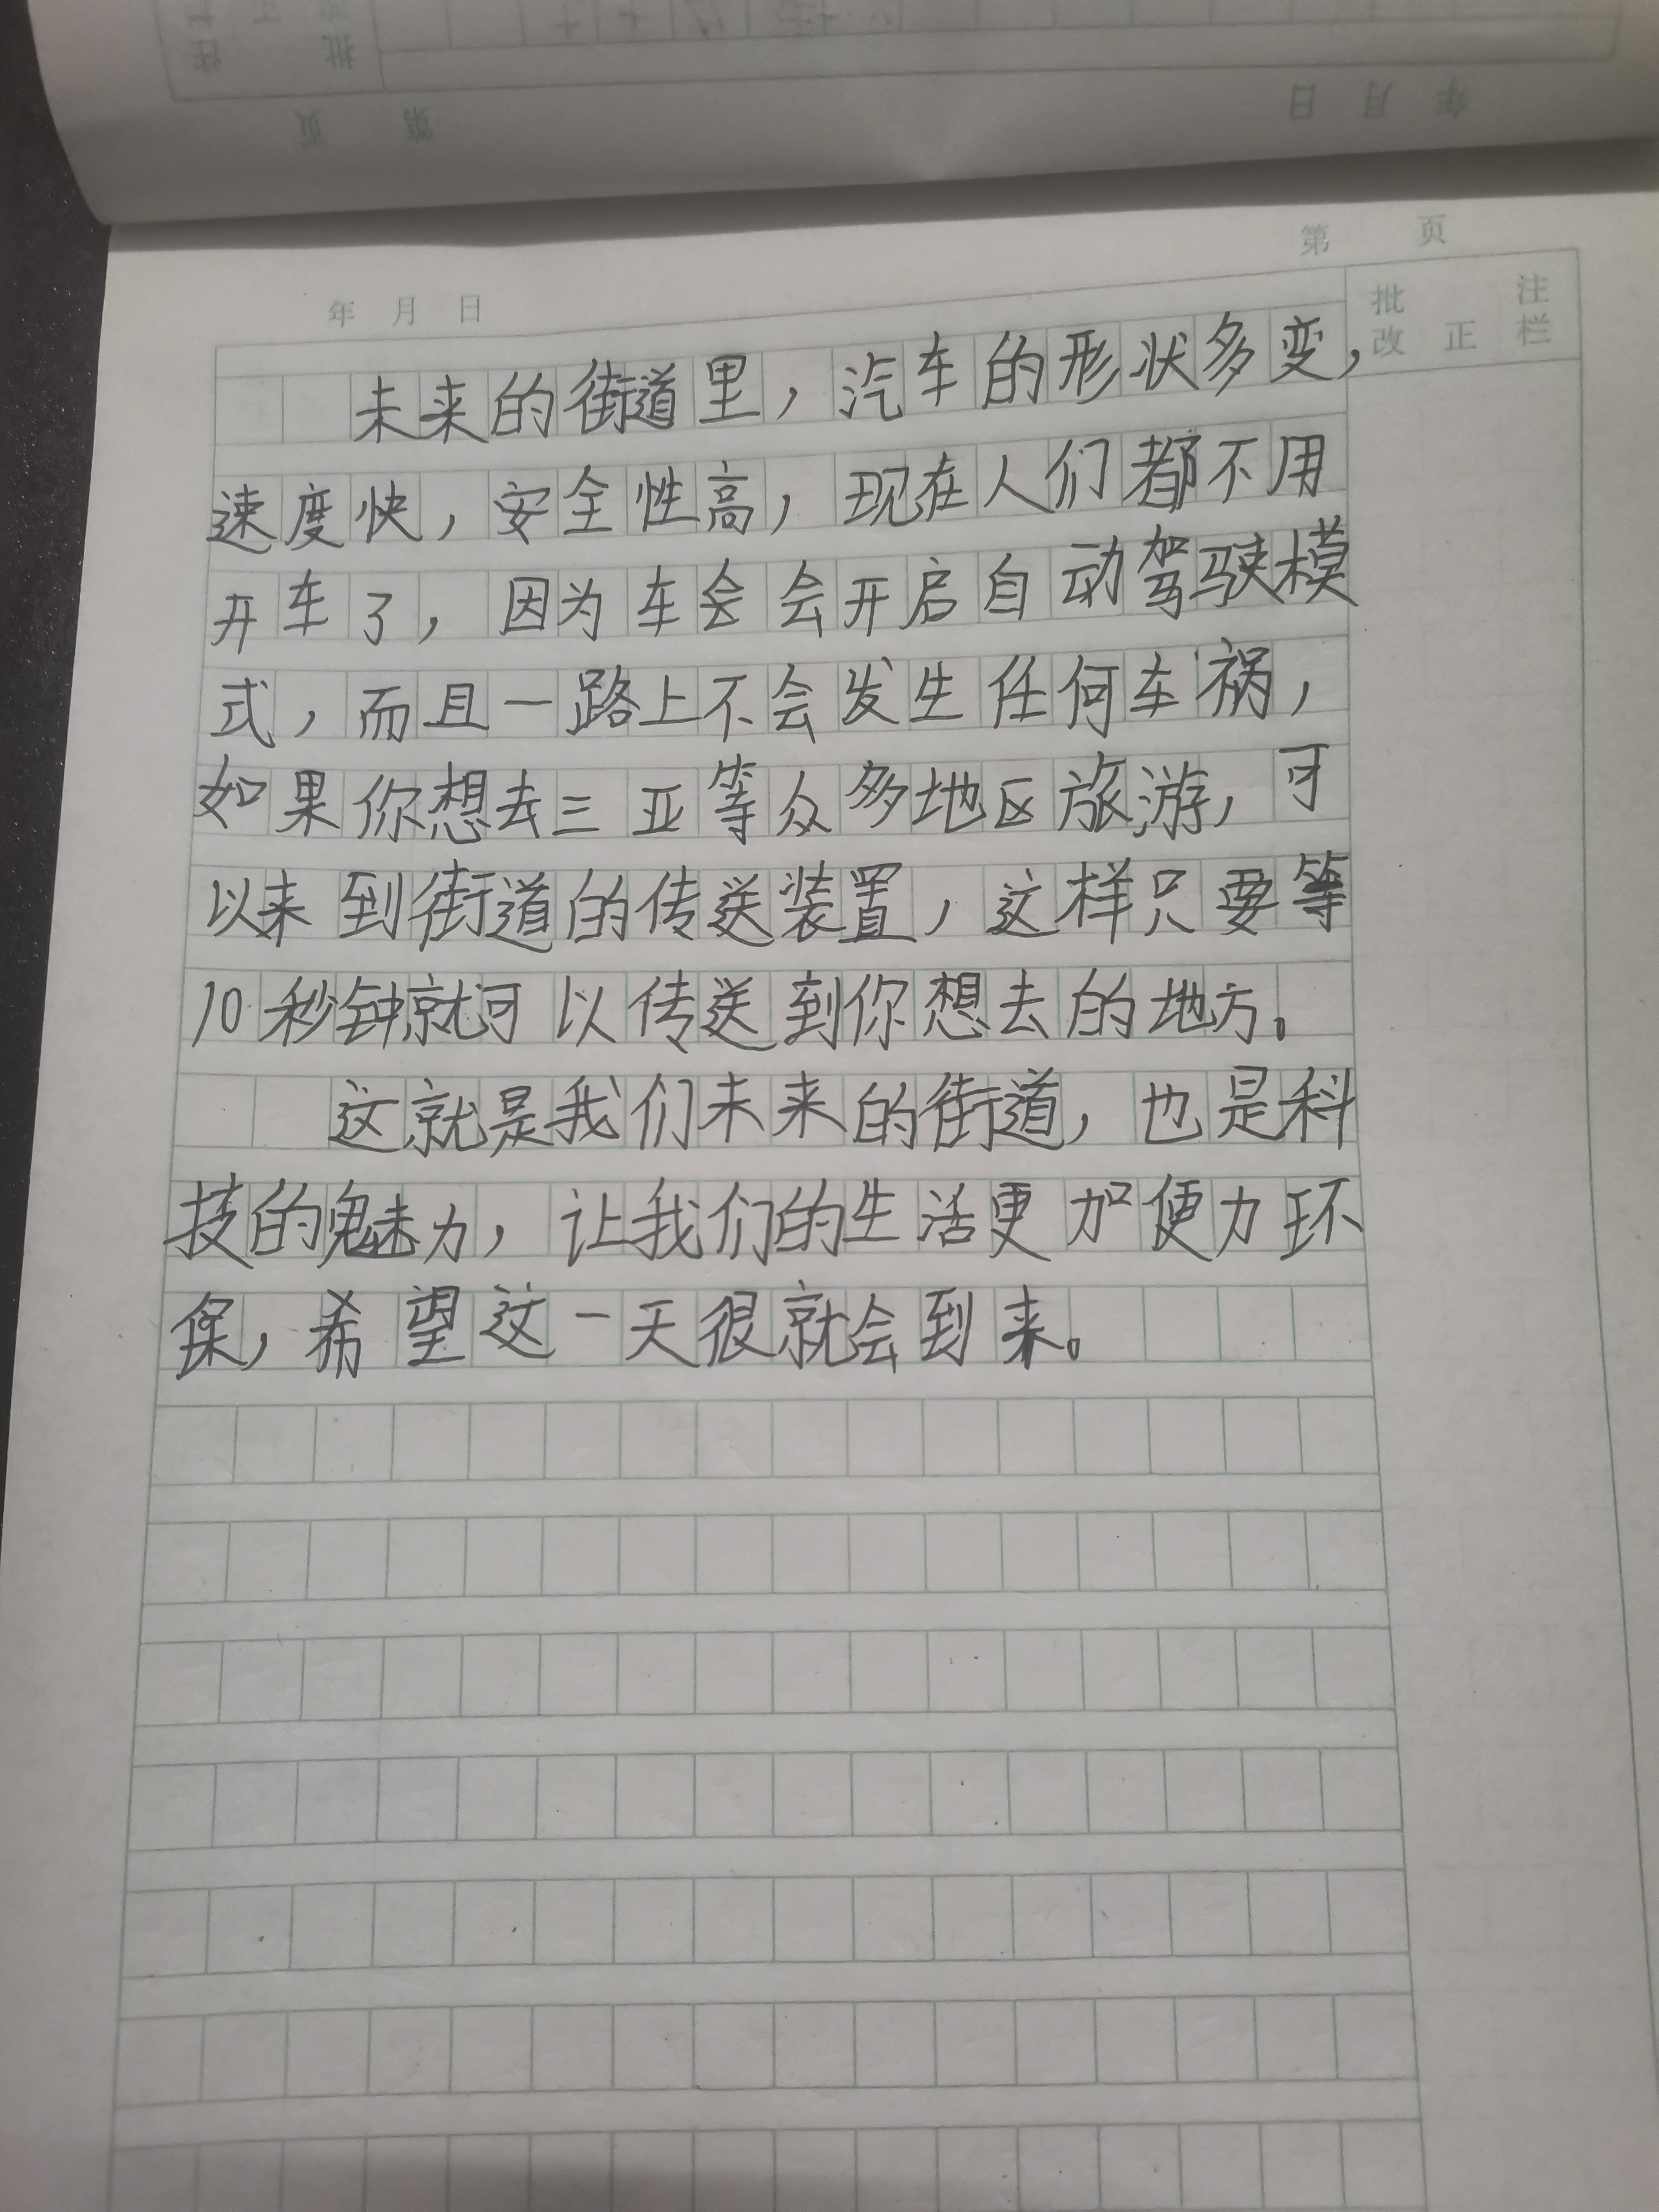 第 页
年 月 日
批 注
改 正 栏
未来的街道里，汽车的形状多变，
速度快，安全性高，现在人们都不用
开车了，因为车会会开启自动驾驶模
式，而且一路上不会发生任何车祸，
如果你想去三亚等众多地区旅游，可
以来到街道的传送装置，这样只要等
10秒钟就可以传送到你想去的地方。
这就是我们未来的街道，也是科
技的魅力，让我们的生活更加便力环
保，希望这一天很就会到来。